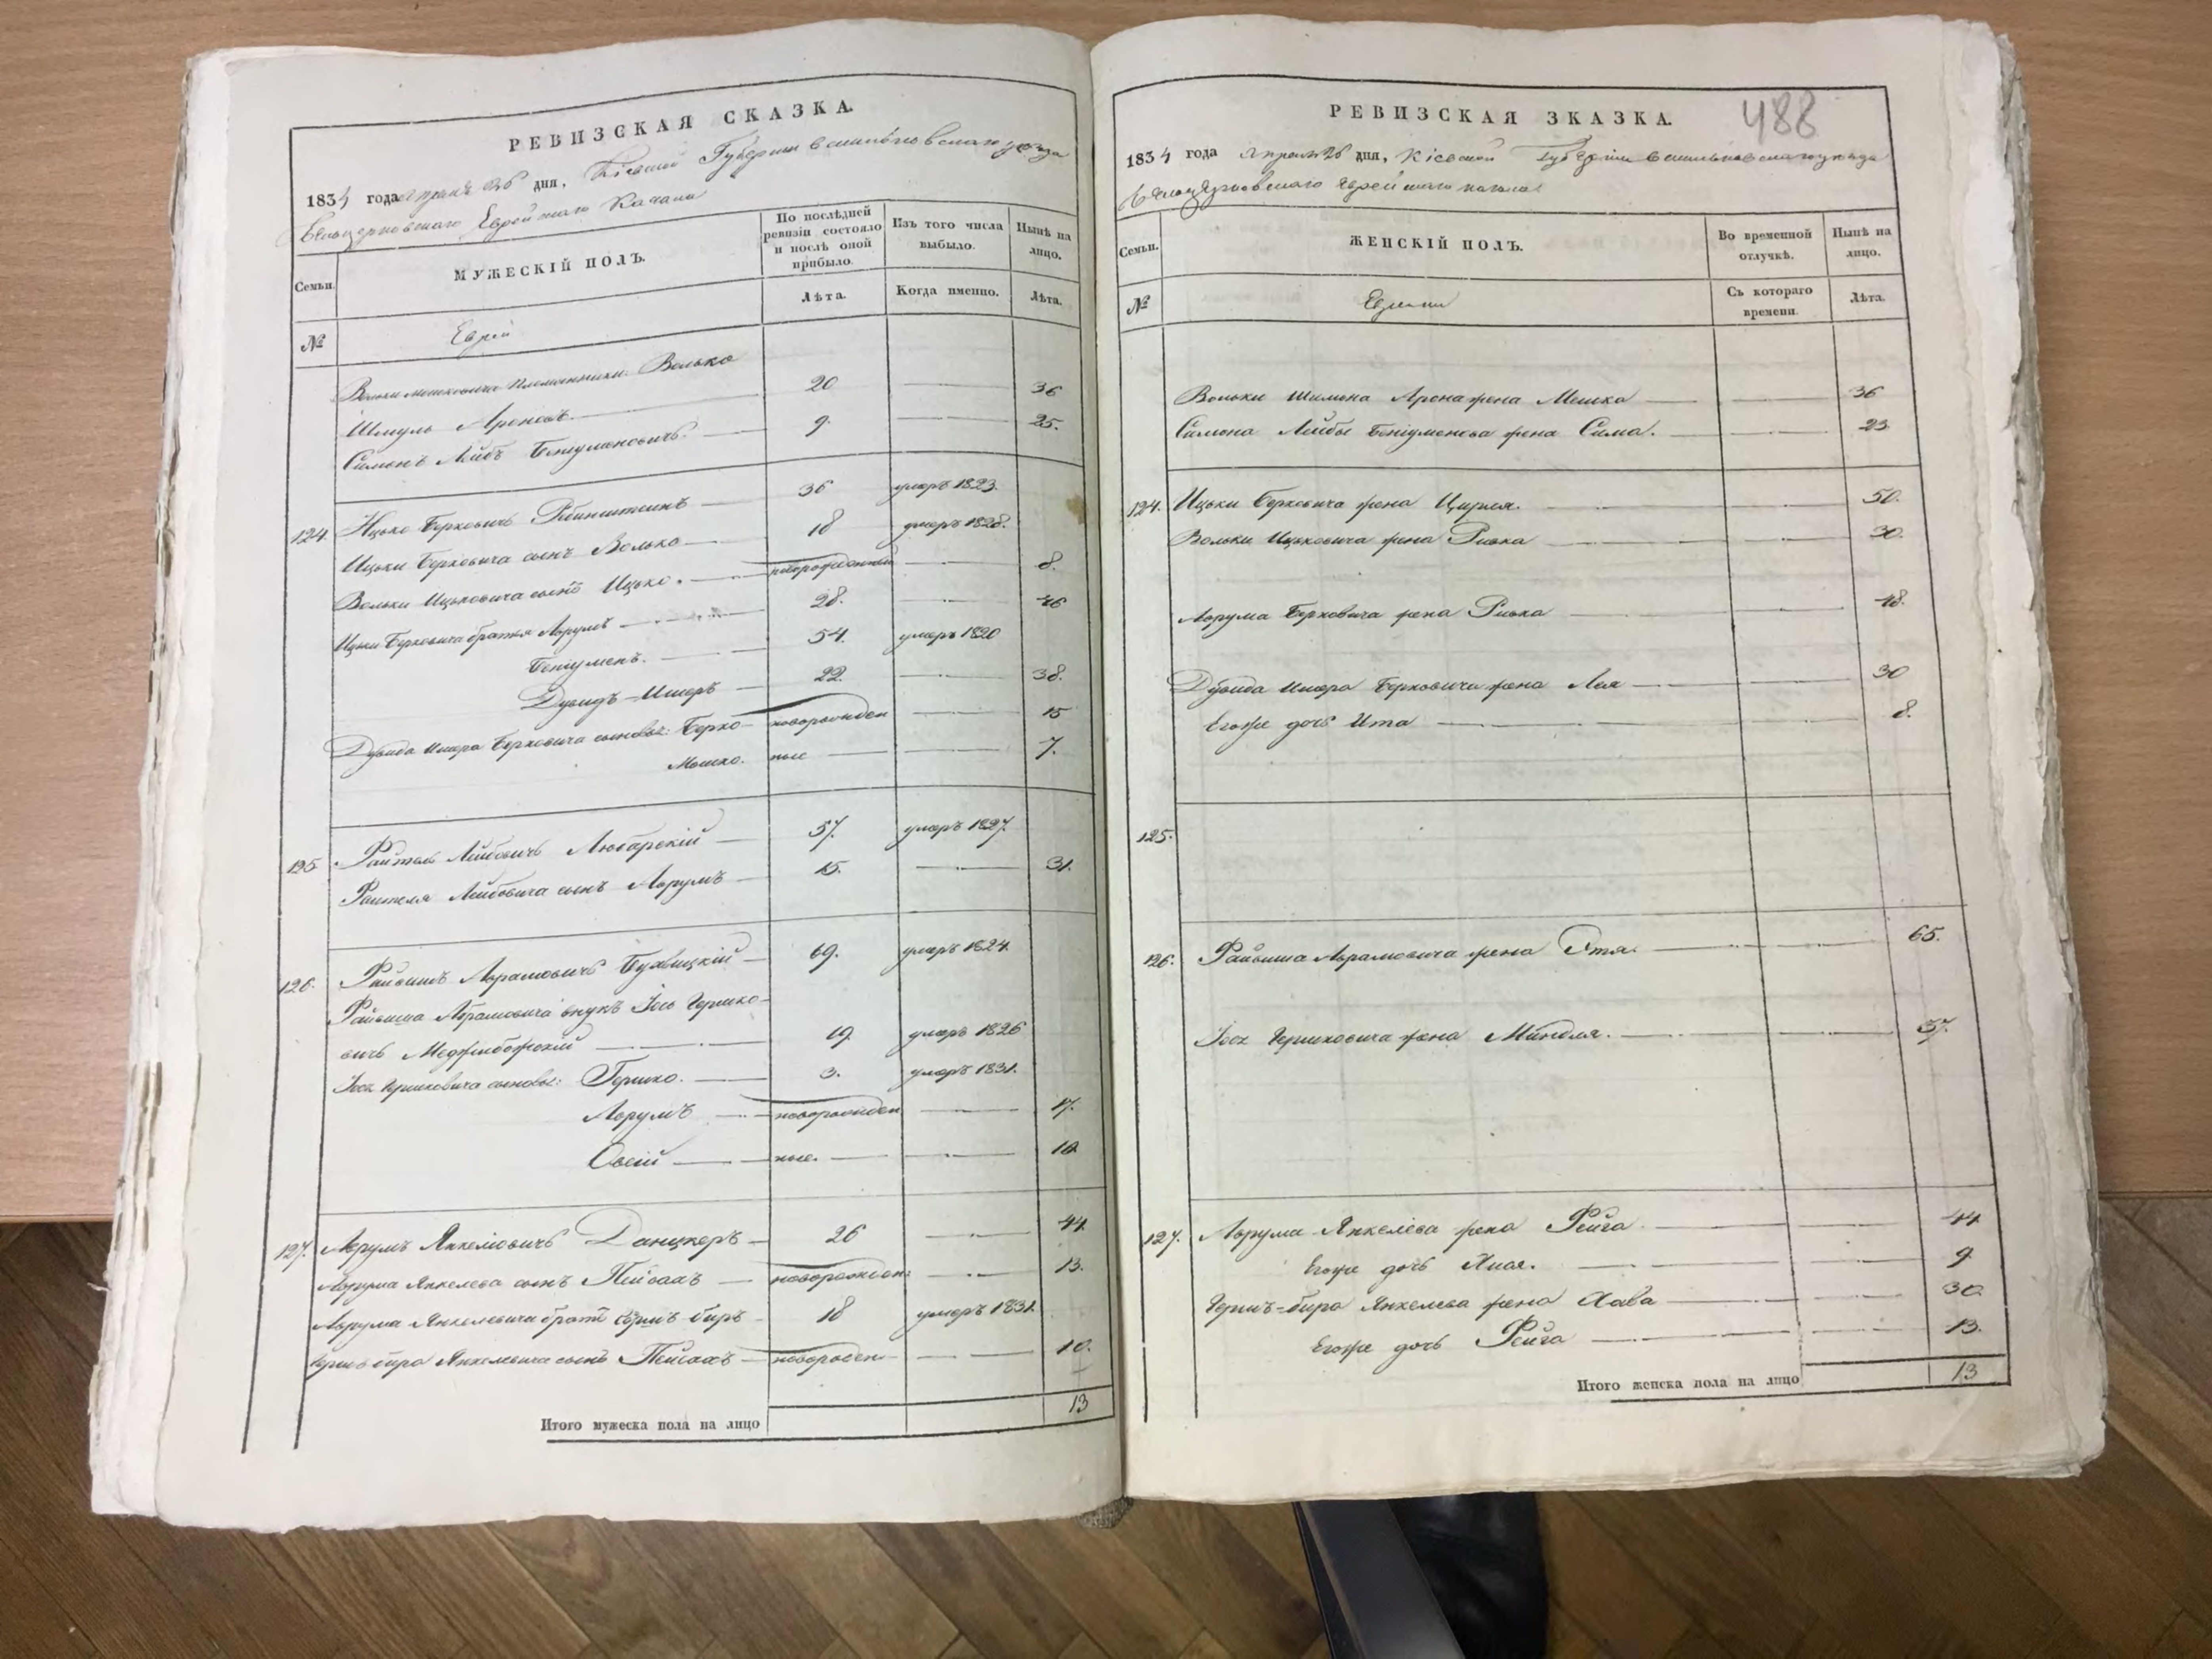 РЕВИЗСКАЯ СКАЗКА.
1834 года апреля 26 дня, Кіевской Губерніи Васильковскаго уезда
Белоцерковскаго Еврейскаго Кагала
Семьи.
МУЖЕСКІЙ ПОЛЪ.
По послѣдней ревизіи состояло и послѣ оной прибыло.
Изъ того числа выбыло.
Нынѣ на лицо.
№
Лѣта.
Когда именно.
Лѣта.
Евреи
Вольки Мошковича племянники: Волько
Шмуль Ароновъ. 20 36
Симонъ Лейбъ Беніуминовичъ. 9. 25.
124. Ицько Берковичъ 36 умеръ 1823.
Ицьки Берковича сынъ Волько 18 умеръ 1828.
Вольки Ицьковича сынъ Ицько. новорожденный 8.
Ицьки Берковича братья Аврумъ 28. 46
Беніуменъ. 54. умеръ 1820
Дувидъ-Имеръ 22. 38.
Дувида Имера Берковича сыновья: Берко новорожден 15
Мошко. ные 7.
125. Файтель Лейбовичъ Любарскій 57. умеръ 1827.
Файтеля Лейбовича сынъ Аврумъ 15. 31.
126. Файвишъ Аврамовичъ 69. умеръ 1824.
Файвиша Аврамовича внукъ Іось Гершко-
вичъ Меджибожскій 19. умеръ 1826
Іося Гершковича сыновья: Гершко. 3. умеръ 1831.
Аврумъ новорожден 17.
Овсій ные. 10
127. Аврумъ Янкелювичъ Данцкеръ 26 44
Аврума Янкелева сынъ Пейсахъ новорожден: 13.
Аврума Янкелевича братъ Гершъ-биръ 18 умеръ 1831.
Гершъ-бира Янкелевича сынъ Пейсахъ новорожден 10.
Итого мужеска пола на лицо 13
488
РЕВИЗСКАЯ ЗКАЗКА.
1834 года апреля 26 дня, Кіевской Губерніи Васильковскаго уезда
Белоцерковскаго Еврейскаго кагала
Семьи.
ЖЕНСКІЙ ПОЛЪ.
Во временной отлучкѣ.
Нынѣ на лицо.
№
Съ котораго времени.
Лѣта.
Еврейки
Вольки Шмиля Арона жена Мешка 36
Симона Лейбы Беніуменова жена Сима. 23
124. Ицьки Берковича жена Цирля. 50.
Вольки Ицьковича жена Ривка 30.
Аврума Берковича жена Ривка 48.
Дувида Имера Берковича жена Лея 30
Егоже дочь Ита 8.
125.
126. Файвиша Аврамовича жена Этя. 65.
Іося Гершковича жена Миндля. 37.
127. Аврума Янкелева жена Фейга. 44
Егоже дочь Хная. 9
Гершъ-бира Янкелева жена Хава 30
Егоже дочь Фейга 13.
Итого женска пола на лицо 13